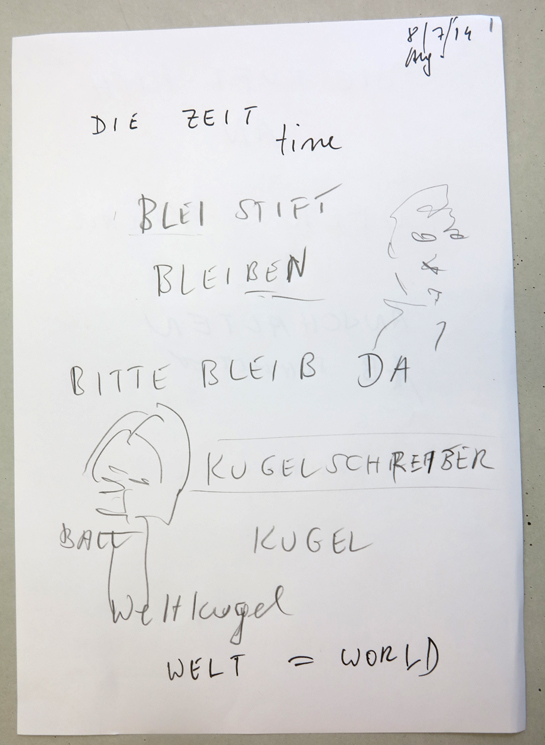 8/7/14
Aug.
DIE ZEIT
time
BLEI STIFT
BLEIBEN
BITTE BLEIB DA
KUGELSCHREIBER
BALL KUGEL
Weltkugel
WELT = WORLD